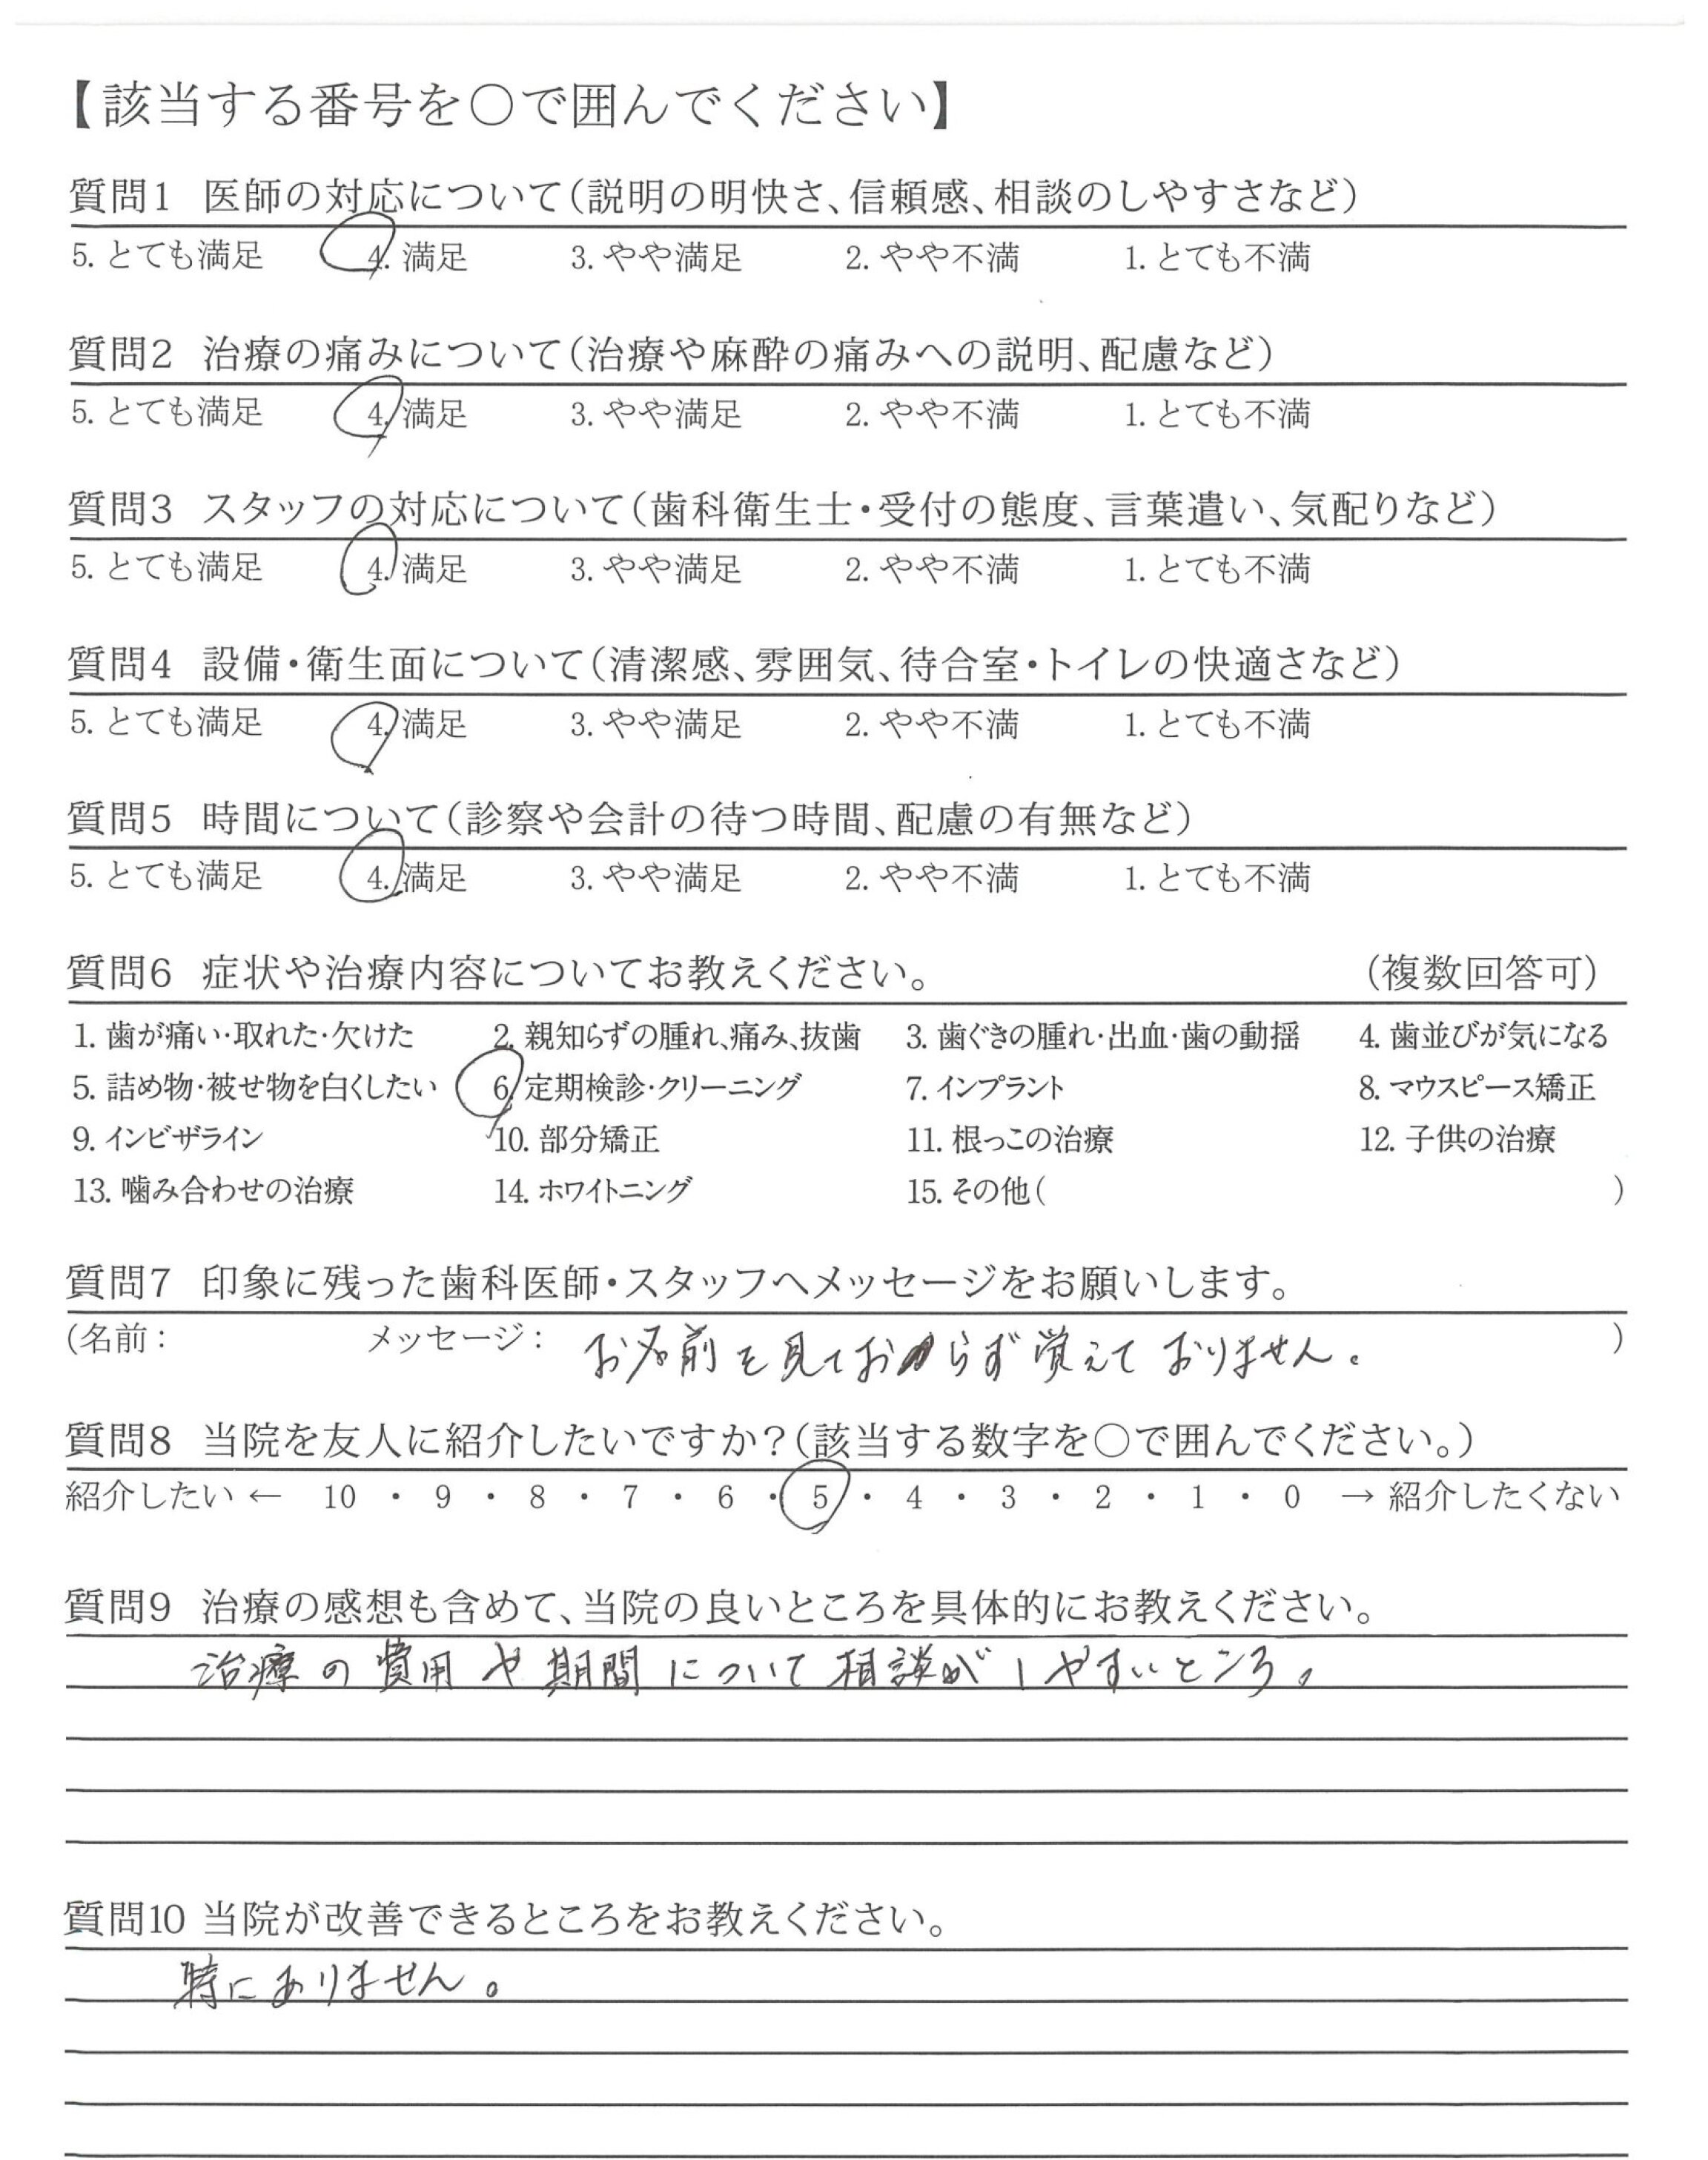 【該当する番号を○で囲んでください】
質問1 医師の対応について(説明の明快さ、信頼感、相談のしやすさなど)
5. とても満足 4. 満足 3. やや満足 2. やや不満 1. とても不満
質問2 治療の痛みについて(治療や麻酔の痛みへの説明、配慮など)
5. とても満足 4. 満足 3. やや満足 2. やや不満 1. とても不満
質問3 スタッフの対応について(歯科衛生士・受付の態度、言葉遣い、気配りなど)
5. とても満足 4. 満足 3. やや満足 2. やや不満 1. とても不満
質問4 設備・衛生面について(清潔感、雰囲気、待合室・トイレの快適さなど)
5. とても満足 4. 満足 3. やや満足 2. やや不満 1. とても不満
質問5 時間について(診察や会計の待つ時間、配慮の有無など)
5. とても満足 4. 満足 3. やや満足 2. やや不満 1. とても不満
質問6 症状や治療内容についてお教えください。 (複数回答可)
1. 歯が痛い・取れた・欠けた 2. 親知らずの腫れ、痛み、抜歯 3. 歯ぐきの腫れ・出血・歯の動揺 4. 歯並びが気になる
5. 詰め物・被せ物を白くしたい 6. 定期検診・クリーニング 7. インプラント 8. マウスピース矯正
9. インビザライン 10. 部分矯正 11. 根っこの治療 12. 子供の治療
13. 噛み合わせの治療 14. ホワイトニング 15. その他( )
質問7 印象に残った歯科医師・スタッフへメッセージをお願いします。
(名前: メッセージ: お名前を見ておらず覚えておりません。 )
質問8 当院を友人に紹介したいですか?(該当する数字を○で囲んでください。)
紹介したい ← 10 ・ 9 ・ 8 ・ 7 ・ 6 ・ 5 ・ 4 ・ 3 ・ 2 ・ 1 ・ 0 → 紹介したくない
質問9 治療の感想も含めて、当院の良いところを具体的にお教えください。
治療の費用や期間について相談がしやすいところ。
質問10 当院が改善できるところをお教えください。
特にありません。